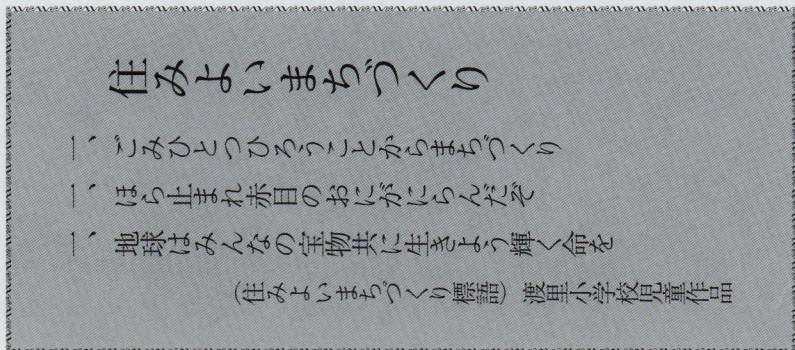 住みよいまちづくり
一、ごみひとつひろうことからまちづくり
一、ほら止まれ赤目のおにがにらんだぞ
一、地球はみんなの宝物共に生きよう輝く命を
（住みよいまちづくり標語）渡里小学校児童作品